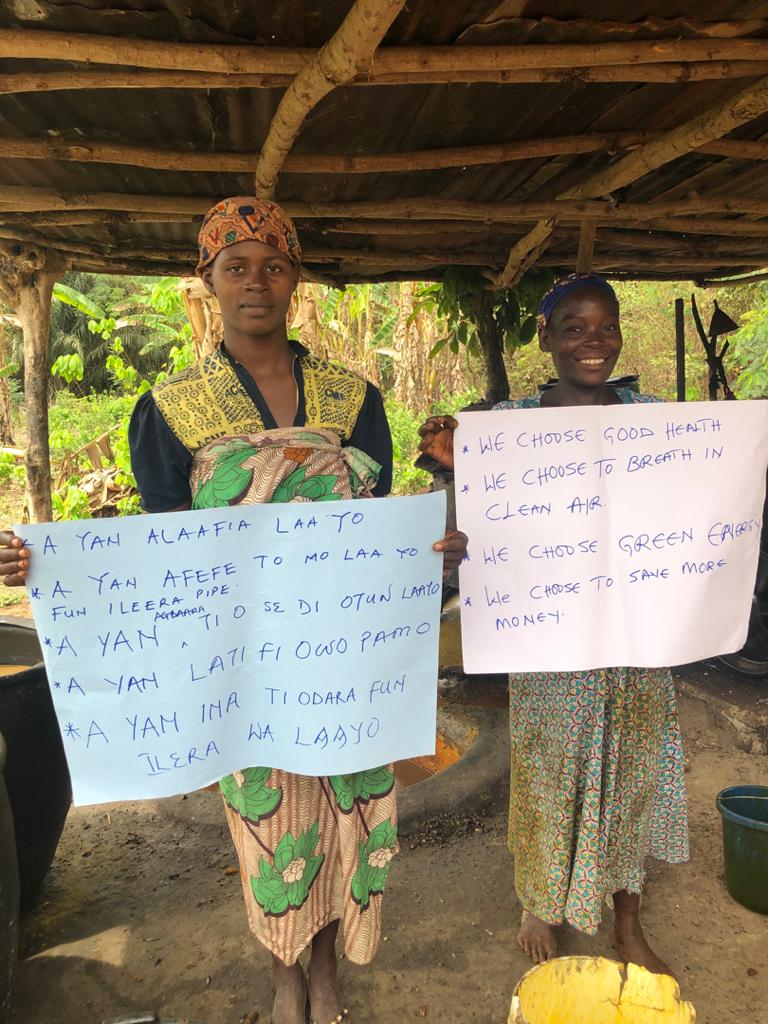 * A YAN ALAAFIA LAAYO
* A YAN AFEFE TO MO LAA YO
FUN ILEERA PIPE.
AGBAARA
* A YAN ^ TI O SE DI OTUN LAAYO
* A YAN LATI FI OWO PAMO
* A YAN INA TI ODARA FUN
ILERA WA LAAYO.
* WE CHOOSE GOOD HEALTH
* WE CHOOSE TO BREATH IN
CLEAN AIR.
* WE CHOOSE GREEN ENERGY
* WE CHOOSE TO SAVE MORE
MONEY.